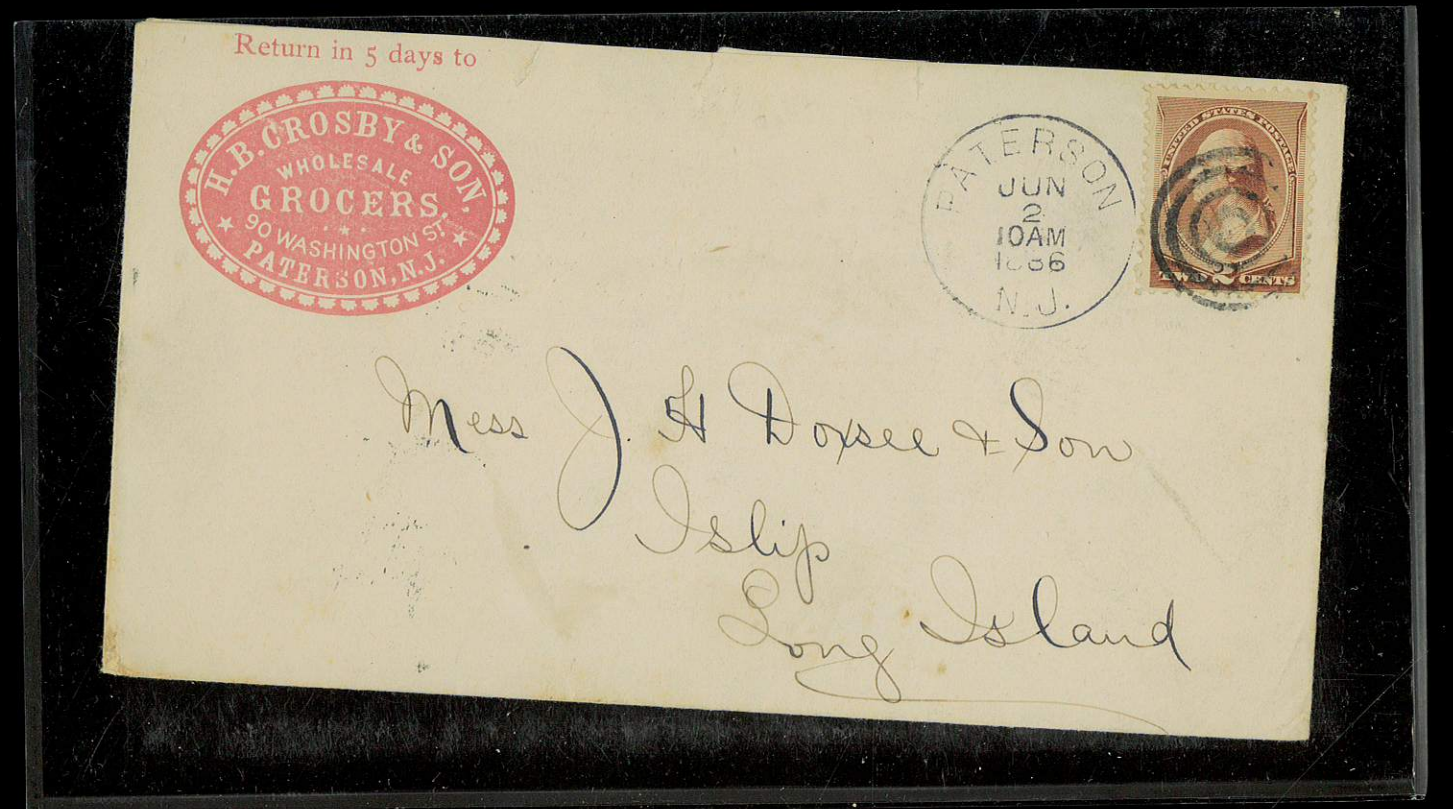 Return in 5 days to
H.B. CROSBY & SON.
WHOLESALE
GROCERS,
90 WASHINGTON ST.
PATERSON, N.J.
PATERSON
JUN
2
10AM
1886
N.J.
UNITED STATES POSTAGE
TWO 2 CENTS
Mess J. H Doxsee & Son
Islip
Long Island